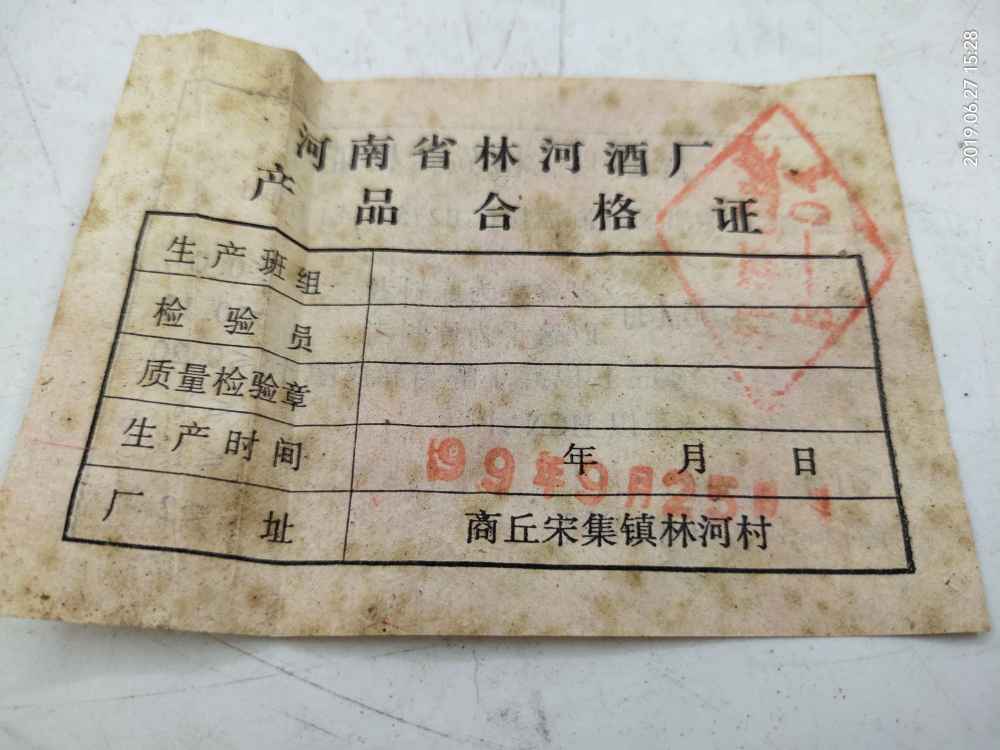 河南省林河酒厂
产品合格证
生产班组
检验员
质量检验章
生产时间 年 月 日
99年9月25日
厂址 商丘宋集镇林河村
2019.06.27 15:28